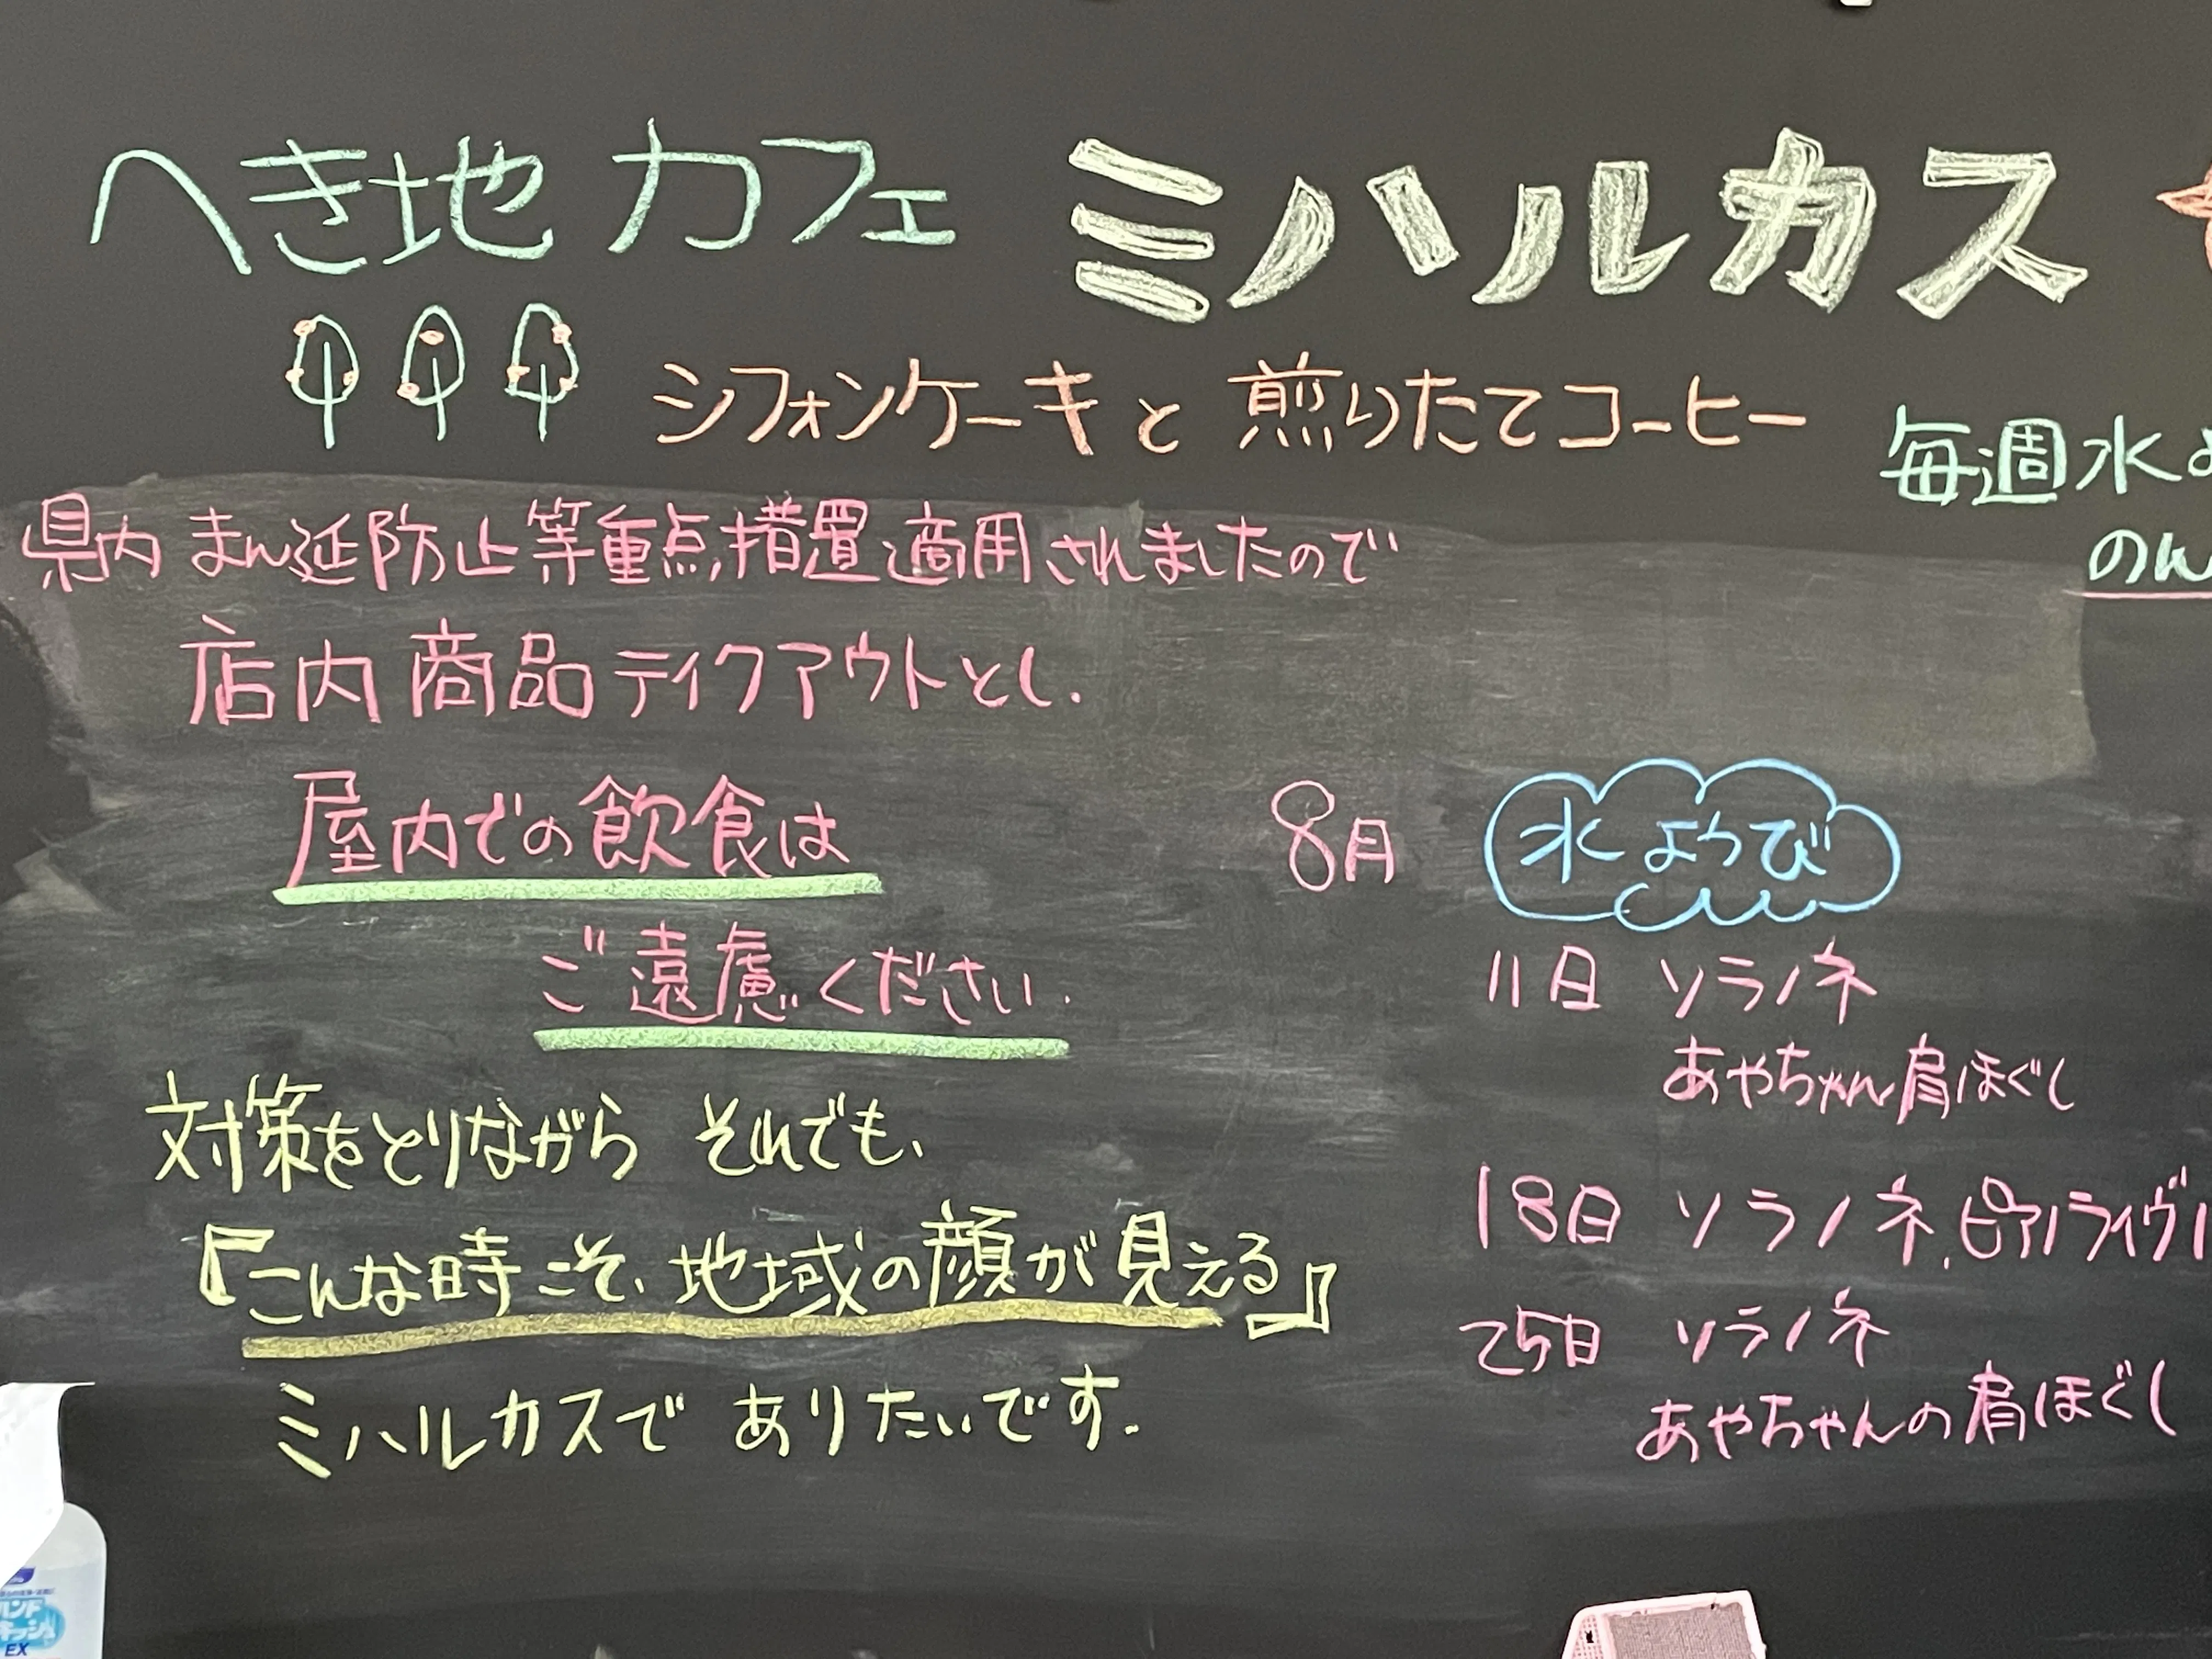 へき地カフェ ミハルカス
シフォンケーキと煎りたてコーヒー
毎週水よ
のん
県内まん延防止等重点措置適用されましたので
店内商品テイクアウトとし.
屋内での飲食は
ご遠慮ください.
対策をとりながら それでも、
『こんな時こそ、地域の顔が見える』
ミハルカスで ありたいです.
8月 水ようび
11日 ソラノネ
あやちゃん肩ほぐし
18日 ソラノネ、ピアノライヴ
25日 ソラノネ
あやちゃんの肩ほぐし
EX